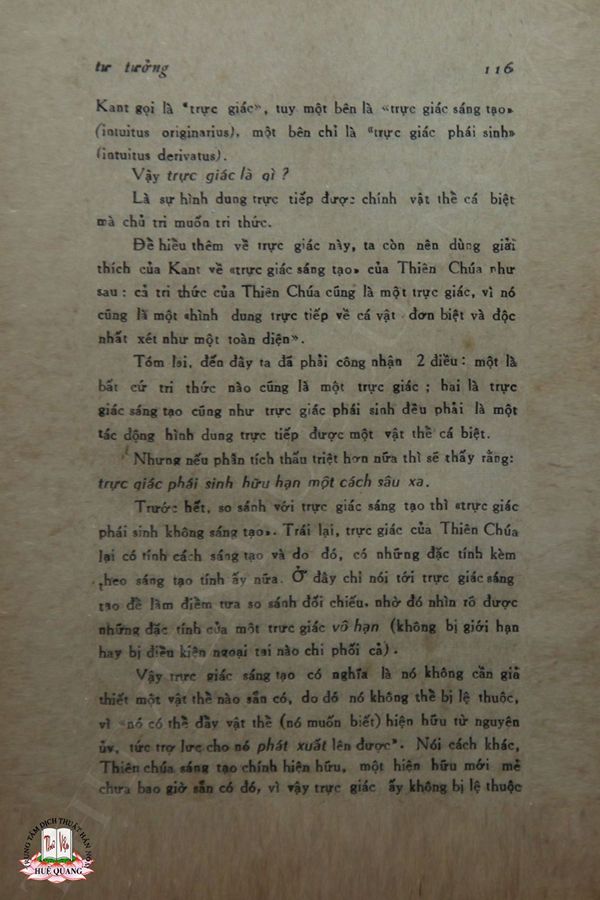 tư tưởng 116
Kant gọi là "trực giác», tuy một bên là «trực giác sáng tạo»
(intuitus originarius), một bên chỉ là «trực giác phái sinh»
(intuitus derivatus).
Vậy trực giác là gì ?
Là sự hình dung trực tiếp được chính vật thể cá biệt
mà chủ tri muốn tri thức.
Để hiểu thêm về trực giác này, ta còn nên dùng giải
thích của Kant về «trực giác sáng tạo» của Thiên Chúa như
sau : cả tri thức của Thiên Chúa cũng là một trực giác, vì nó
cũng là một «hình dung trực tiếp về cá vật đơn biệt và độc
nhất xét như một toàn diện».
Tóm lại, đến đây ta đã phải công nhận 2 điều : một là
bất cứ tri thức nào cũng là một trực giác ; hai là trực
giác sáng tạo cũng như trực giác phái sinh đều phải là một
tác động hình dung trực tiếp được một vật thể cá biệt.
Nhưng nếu phân tích thấu triệt hơn nữa thì sẽ thấy rằng:
trực giác phái sinh hữu hạn một cách sâu xa.
Trước hết, so sánh với trực giác sáng tạo thì «trực giác
phái sinh không sáng tạo». Trái lại, trực giác của Thiên Chúa
lại có tính cách sáng tạo và do đó, có những đặc tính kèm
theo sáng tạo tính ấy nữa. Ở đây chỉ nói tới trực giác sáng
tạo để làm điểm tựa so sánh đối chiếu, nhờ đó nhìn rõ được
những đặc tính của một trực giác vô hạn (không bị giới hạn
hay bị điều kiện ngoại tại nào chi phối cả).
Vậy trực giác sáng tạo có nghĩa là nó không cần giả
thiết một vật thể nào sẵn có, do đó nó không thể bị lệ thuộc,
vì «nó có thể đẩy vật thể (nó muốn biết) hiện hữu từ nguyên
ủy, tức trợ lực cho nó phát xuất lên được". Nói cách khác,
Thiên chúa sáng tạo chính hiện hữu, một hiện hữu mới mẻ
chưa bao giờ sẵn có đó, vì vậy trực giác ấy không bị lệ thuộc
TRUNG TÂM DỊCH THUẬT HÁN NÔM
HUỆ QUANG